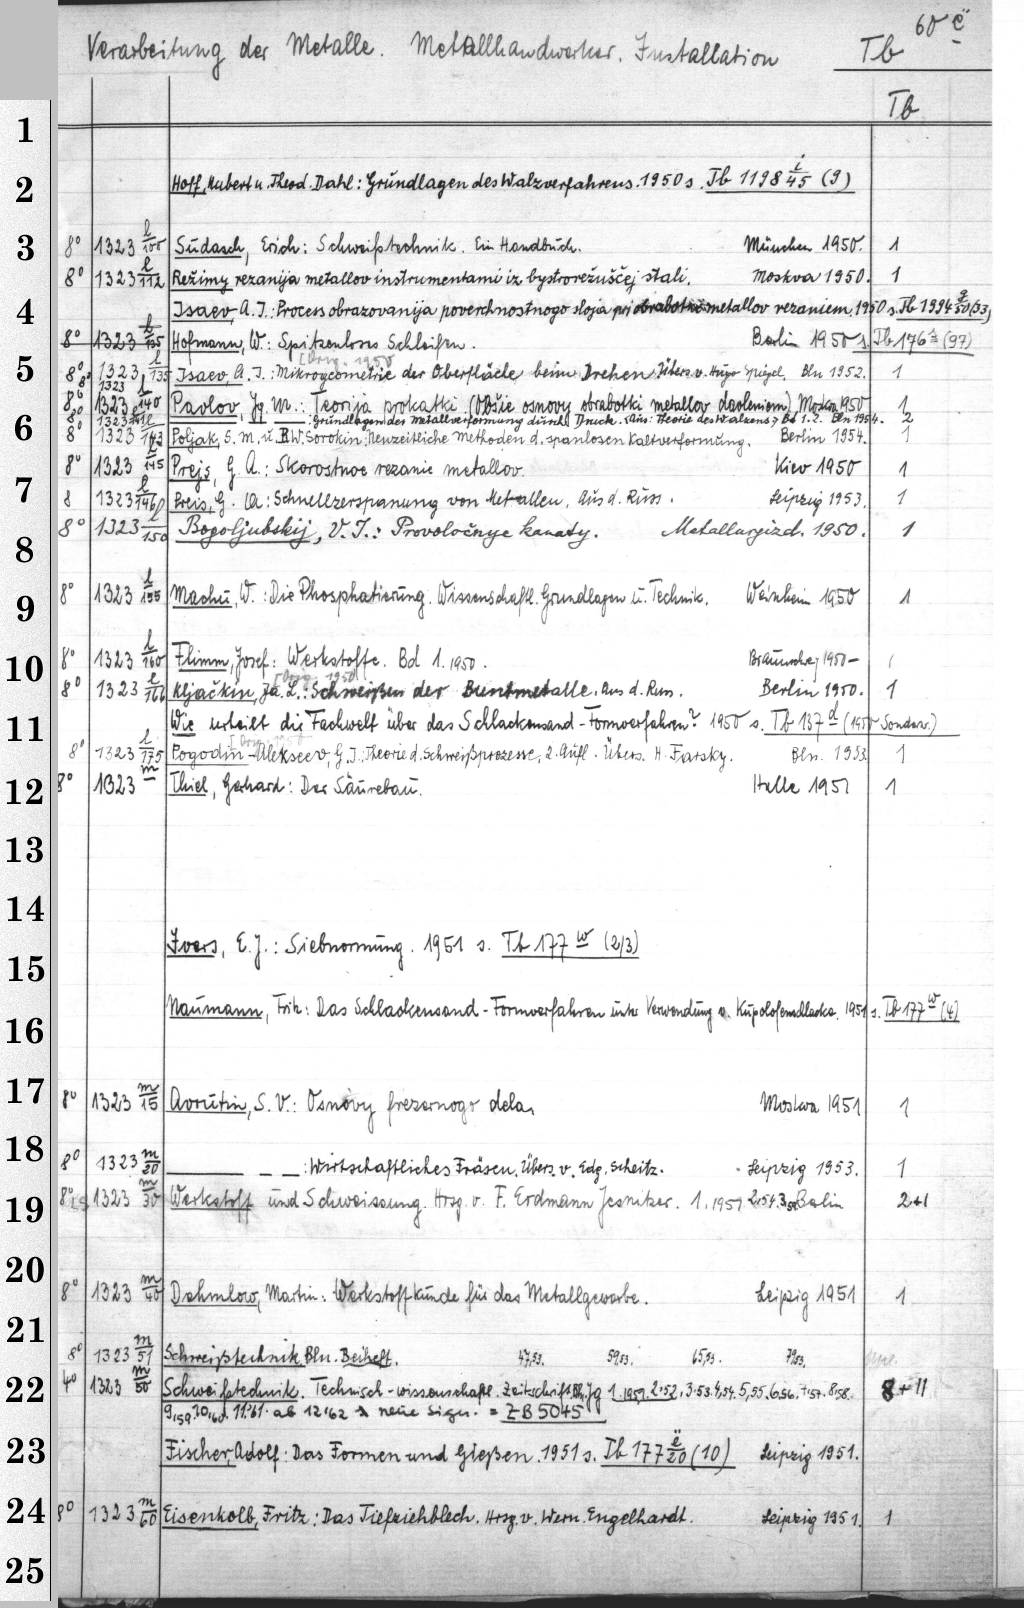 60 ë
Verarbeitung der Metalle. Metallhandwerker. Installation Tb
Tb
1
2 Hoff, Hubert u. Theod. Dahl: Grundlagen des Walzverfahrens. 1950 s. Tb 1198 i/45 (9)
3 8° 1323 l/100 Sudasch, Erich: Schweißtechnik. Ein Handbuch. München 1950. 1
8° 1323 l/112 Režimy rezanija metallov instrumentami iz bystrorežuščej stali. Moskva 1950. 1
4 Isaev, A. I.: Process obrazovanija poverchnostnogo sloja pri obrabotke metallov rezaniem. 1950 s. Tb 1994 g/50 (33)
8° 1323 l/135 Hofmann, W.: Spitzenloses Schleifen. Berlin 1950 s. Tb 176 s (97)
[Orig. 1950
5 8° 1323 l/135 Isaev, A. I.: Mikrogeometrie der Oberfläche beim Drehen. Übers. v. Hugo Spigel. Bln 1952. 1
8° 1323 l/140 Pavlov, Ig. M.: Teorija prokatki (Obšie osnovy obrabotki metallov davleniem) Moskva 1950 1
6 8° 1323 : Grundlagen der Metallverformung durch Druck. (Aus: Theorie des Walzens.) Bd 1. 2. Bln 1954. 2
8° 1323 l/143 Poljak, S. M. u. B. W. Sorokin: Neuzeitliche Methoden d. spanlosen Kaltverformung. Berlin 1954. 1
8° 1323 l/145 Prejs, G. A.: Skorostnoe rezanie metallov. Kiev 1950 1
7 8 1323 l/146 Preis, G. A.: Schnellzerspanung von Metallen. Aus d. Russ. Leipzig 1953. 1
8° 1323 l/150 Bogoljubskij, V. I.: Provoločnye kanaty. Metallurgizd. 1950. 1
8
9 8° 1323 l/155 Machu, W.: Die Phosphatierung. Wissenschaftl. Grundlagen u. Technik. Weinheim 1950 1
10 8° 1323 l/160 Flimm, Josef: Werkstoffe. Bd 1. 1950. Braunschw. 1950- 1
[Orig. 1950]
8° 1323 l/166 Kljačkin, Ja. L.: Schweißen der Buntmetalle. Aus d. Russ. Berlin 1950. 1
11 Wie urteilt die Fachwelt über das Schlackensand-Formverfahren? 1950 s. Tb 137 d (1950 Sonderr.)
8° 1323 l/175 Pogodin-Alekseev, G. I.: Theorie d. Schweißprozesse, 2. Aufl. Übers. H. Farsky. Bln. 1953 1
12 8° 1323 m Thiel, Gerhard: Der Säurebau. Halle 1951 1
13
14
15 Ivers, E. J.: Siebnormung. 1951 s. Tb 177 w (2/3)
16 Naumann, Fritz: Das Schlackensand-Formverfahren unter Verwendung v. Kupolofenschlacke. 1951 s. Tb 177 w (4)
17 8° 1323 m/15 Avrutin, S. V.: Osnovy frezernogo dela. Moskva 1951 1
18 8° 1323 m/20 ___ _ _: Wirtschaftliches Fräsen. Übers. v. Edg. Scheitz. Leipzig 1953. 1
19 8° 1323 m/30 Werkstoff und Schweissung. Hrsg. v. F. Erdmann Jesnitzer. 1. 1951 2,54. Berlin 2+1
20 8° 1323 m/40 Dahmlow, Martin: Werkstoffkunde für das Metallgewerbe. Leipzig 1951 1
21 8° 1323 m/51 Schweißtechnik Bln. Beiheft. 47,53. 59,53. 65,53. 79,53.
22 4° 1323 m/50 Schweißtechnik. Technisch-wissenschaftl. Zeitschrift. Bln. Jg 1.1951, 2.52, 3.53. 4,54. 5,55. 6.56. 7.57. 8.58. 8+11
9,59. 10,60. 11.'61. ab 12'62 neue Sign. = ZB 5045
23 Fischer, Adolf: Das Formen und Gießen. 1951 s. Tb 177 ë/20 (10) Leipzig 1951.
24 8° 1323 m/60 Eisenkolb, Fritz: Das Tiefziehblech. Hrsg. v. Wern. Engelhardt. Leipzig 1951. 1
25